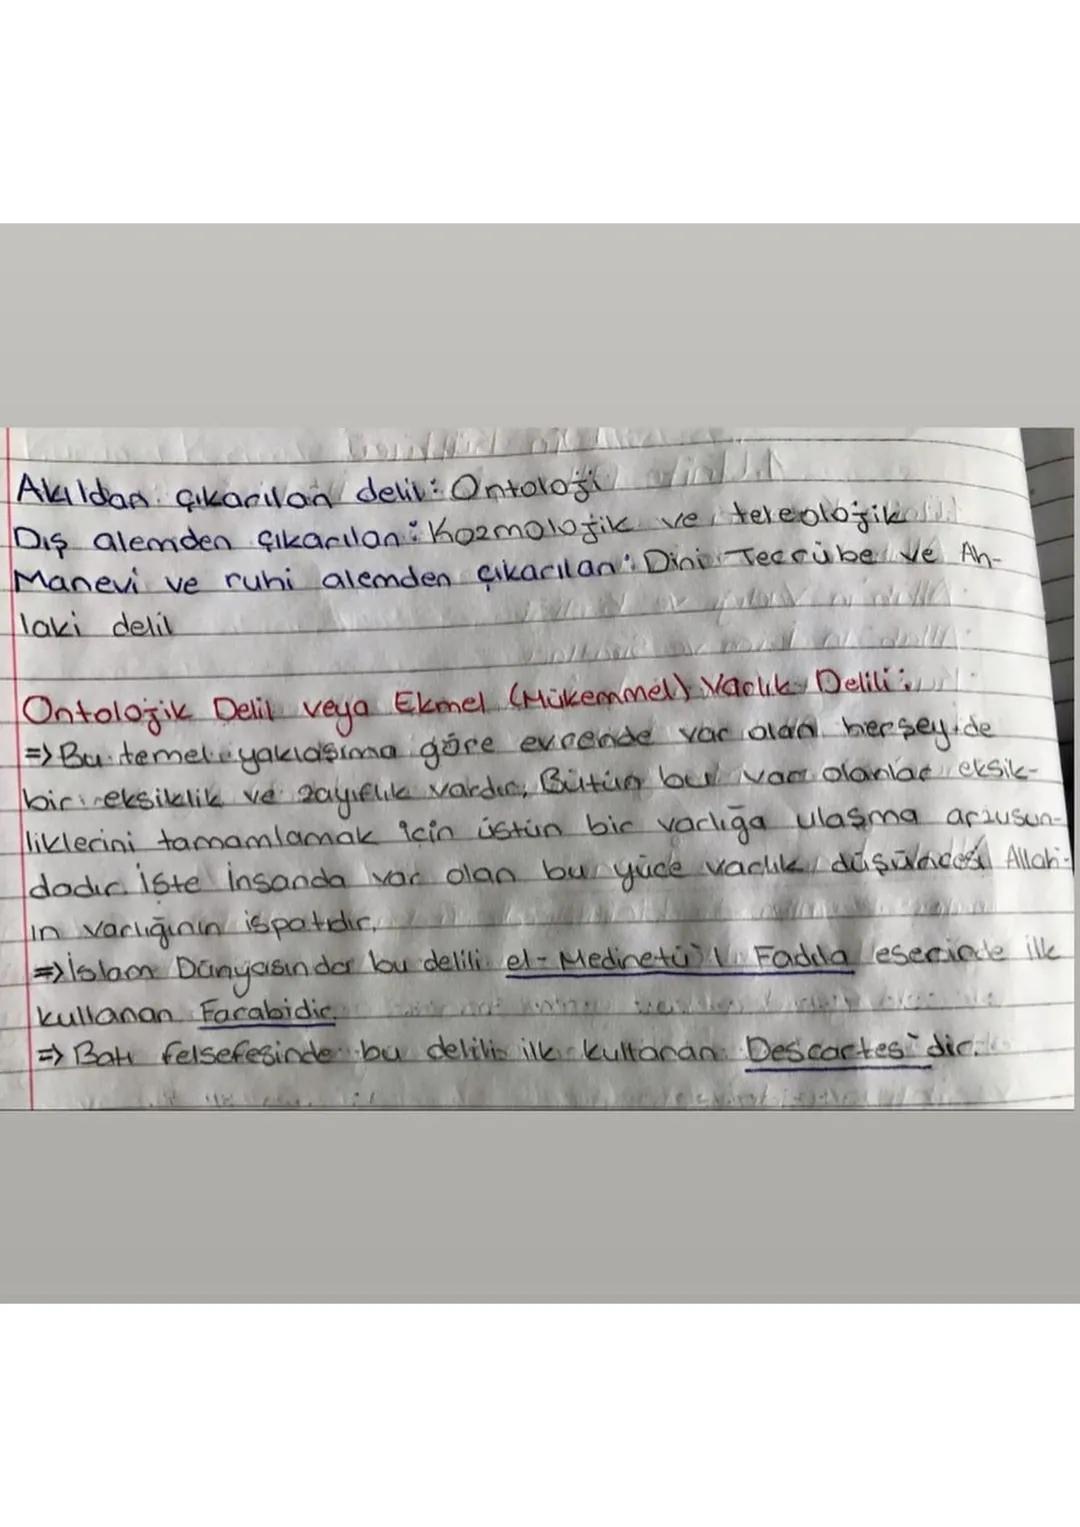 Akıldan çıkarılan delil: Ontoloji
Dış alemden çıkarılan: Kozmolojik ve tereolojik
Manevi ve ruhi alemden çıkarılan: Dini Tecrübe ve Ah-
laki delil
Ontolojik Delil veya Ekmel (Mükemmel) Varlık Delili:
=> Bu temel yaklaşıma göre evrende var olan herşeyde
bir eksiklik ve zayıflık vardır. Bütün bu var olanlar eksik-
liklerini tamamlamak için üstün bir varlığa ulaşma arzusun-
dadır. İşte İnsanda var olan bu yüce varlık düşüncesi Allah'-
ın varlığının ispatıdır.
=> İslam Dünyasında bu delili el-Medinetü'l Fadıla eserinde ilk
kullanan Farabidir.
=> Batı felsefesinde bu delili ilk kullanan Descartes'dir.